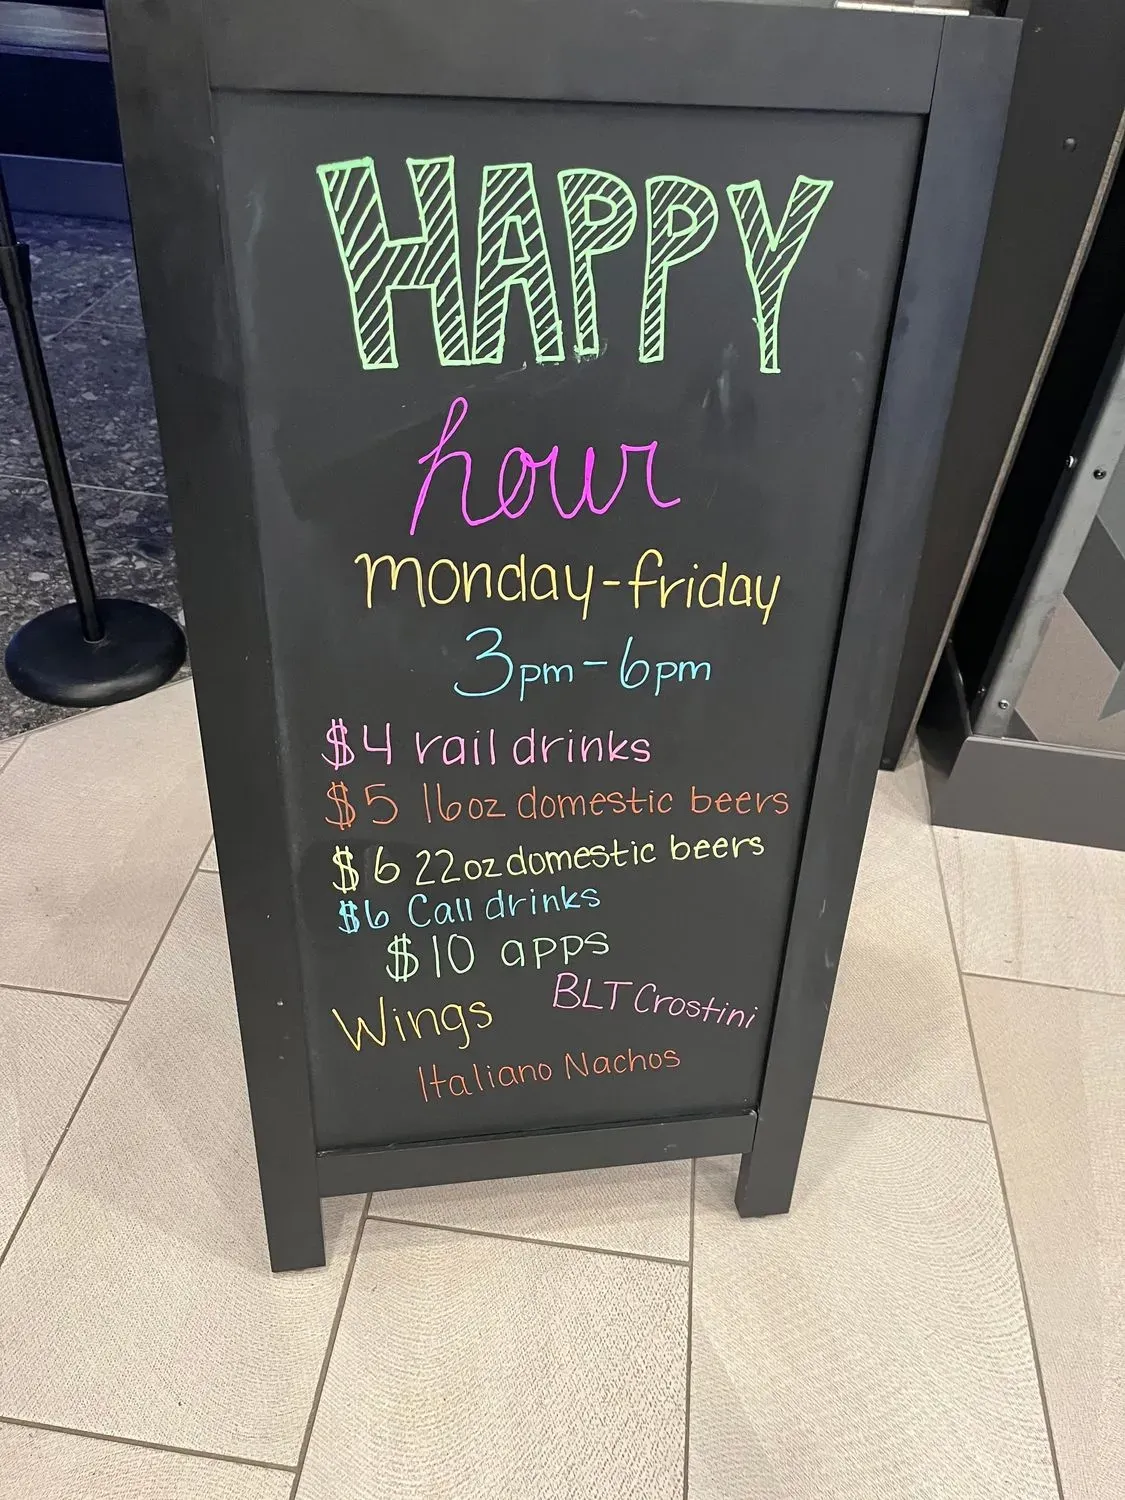 HAPPY
hour
monday-friday
3pm-6pm
$4 rail drinks
$5 16oz domestic beers
$6 22oz domestic beers
$6 Call drinks
$10 apps
Wings BLT Crostini
Italiano Nachos